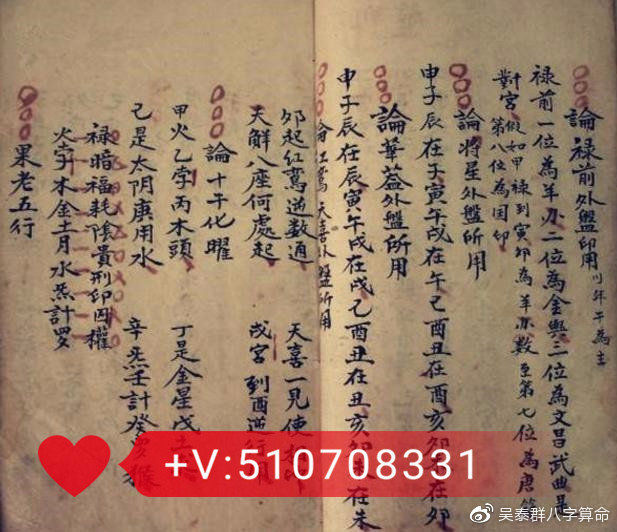 論禄前外盤印用 川年干為主
禄前一位為羊刃二位為金輿三位為文昌武曲是
對宮 假如甲禄到寅卯為羊刃数至第七位為唐
第八位為国印
論將星外盤所用
申子辰在子寅午戌在午巳酉丑在酉亥卯未在卯
論華蓋外盤所用
申子辰在辰寅午戌在戌巳酉丑在丑亥卯未在未
論紅鸞天喜外盤所用
卯起紅鸞逆数通 天喜一見便
天解八座何處起 戌宮到酉逆行
論十干化曜
甲火乙孛丙木頭 丁是金星戊
己是太阴庚用水 辛炁壬計癸羅猴
禄暗福耗陰貴刑印囚權
火孛木金土月水炁計罗
果老五行
+V:510708331
吴泰群八字算命